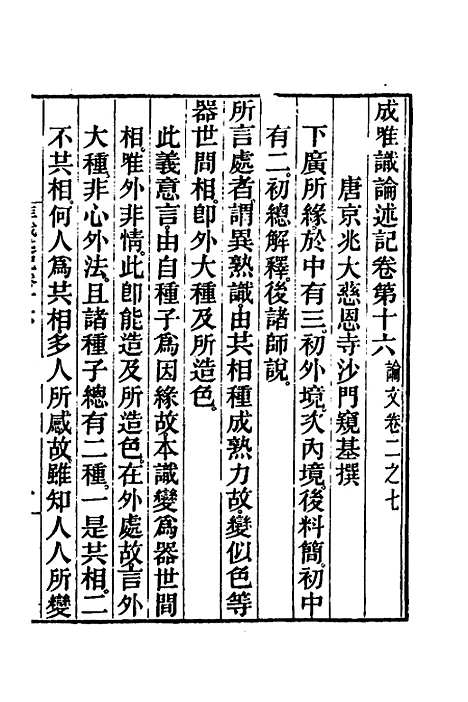 成唯識論述記卷第十六 論文卷二之七
唐京兆大慈恩寺沙門窺基撰
下廣所緣。於中有三。初外境。次內境。後料簡。初中
有二。初總解釋。後諸師說。
所言處者。謂異熟識。由共相種成熟力故。變似色等
器世間相。卽外大種及所造色。
此義意言。由自種子爲因緣故。本識變爲器世間
相。唯外非情。此卽能造及所造色。在外處故。言外
大種。非心外法。且諸種子總有二種。一是共相。二
不共相。何人爲共相。多人所感故。雖知人人所變